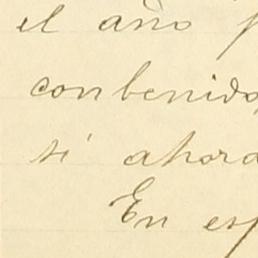 el año p
conbenido
si ahora
En esp